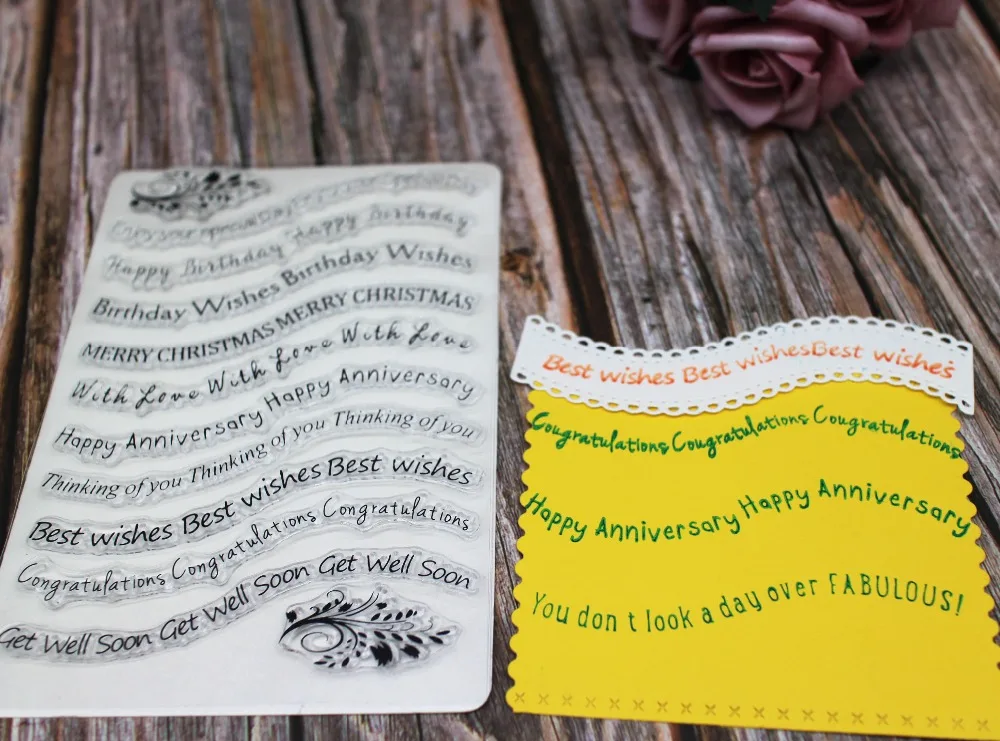 Enjoy your special Day
Happy Birthday Happy Birthday
Birthday Wishes Birthday Wishes
MERRY CHRISTMAS MERRY CHRISTMAS
With Love With Love With Love
Happy Anniversary Happy Anniversary
Thinking of you Thinking of you Thinking of you
Best wishes Best wishes Best wishes
Congratulations Congratulations Congratulations
Get Well Soon Get Well Soon Get Well Soon
Best wishes Best wishes Best wishes
Congratulations Congratulations Congratulations
Happy Anniversary Happy Anniversary
You don t look a day over FABULOUS!